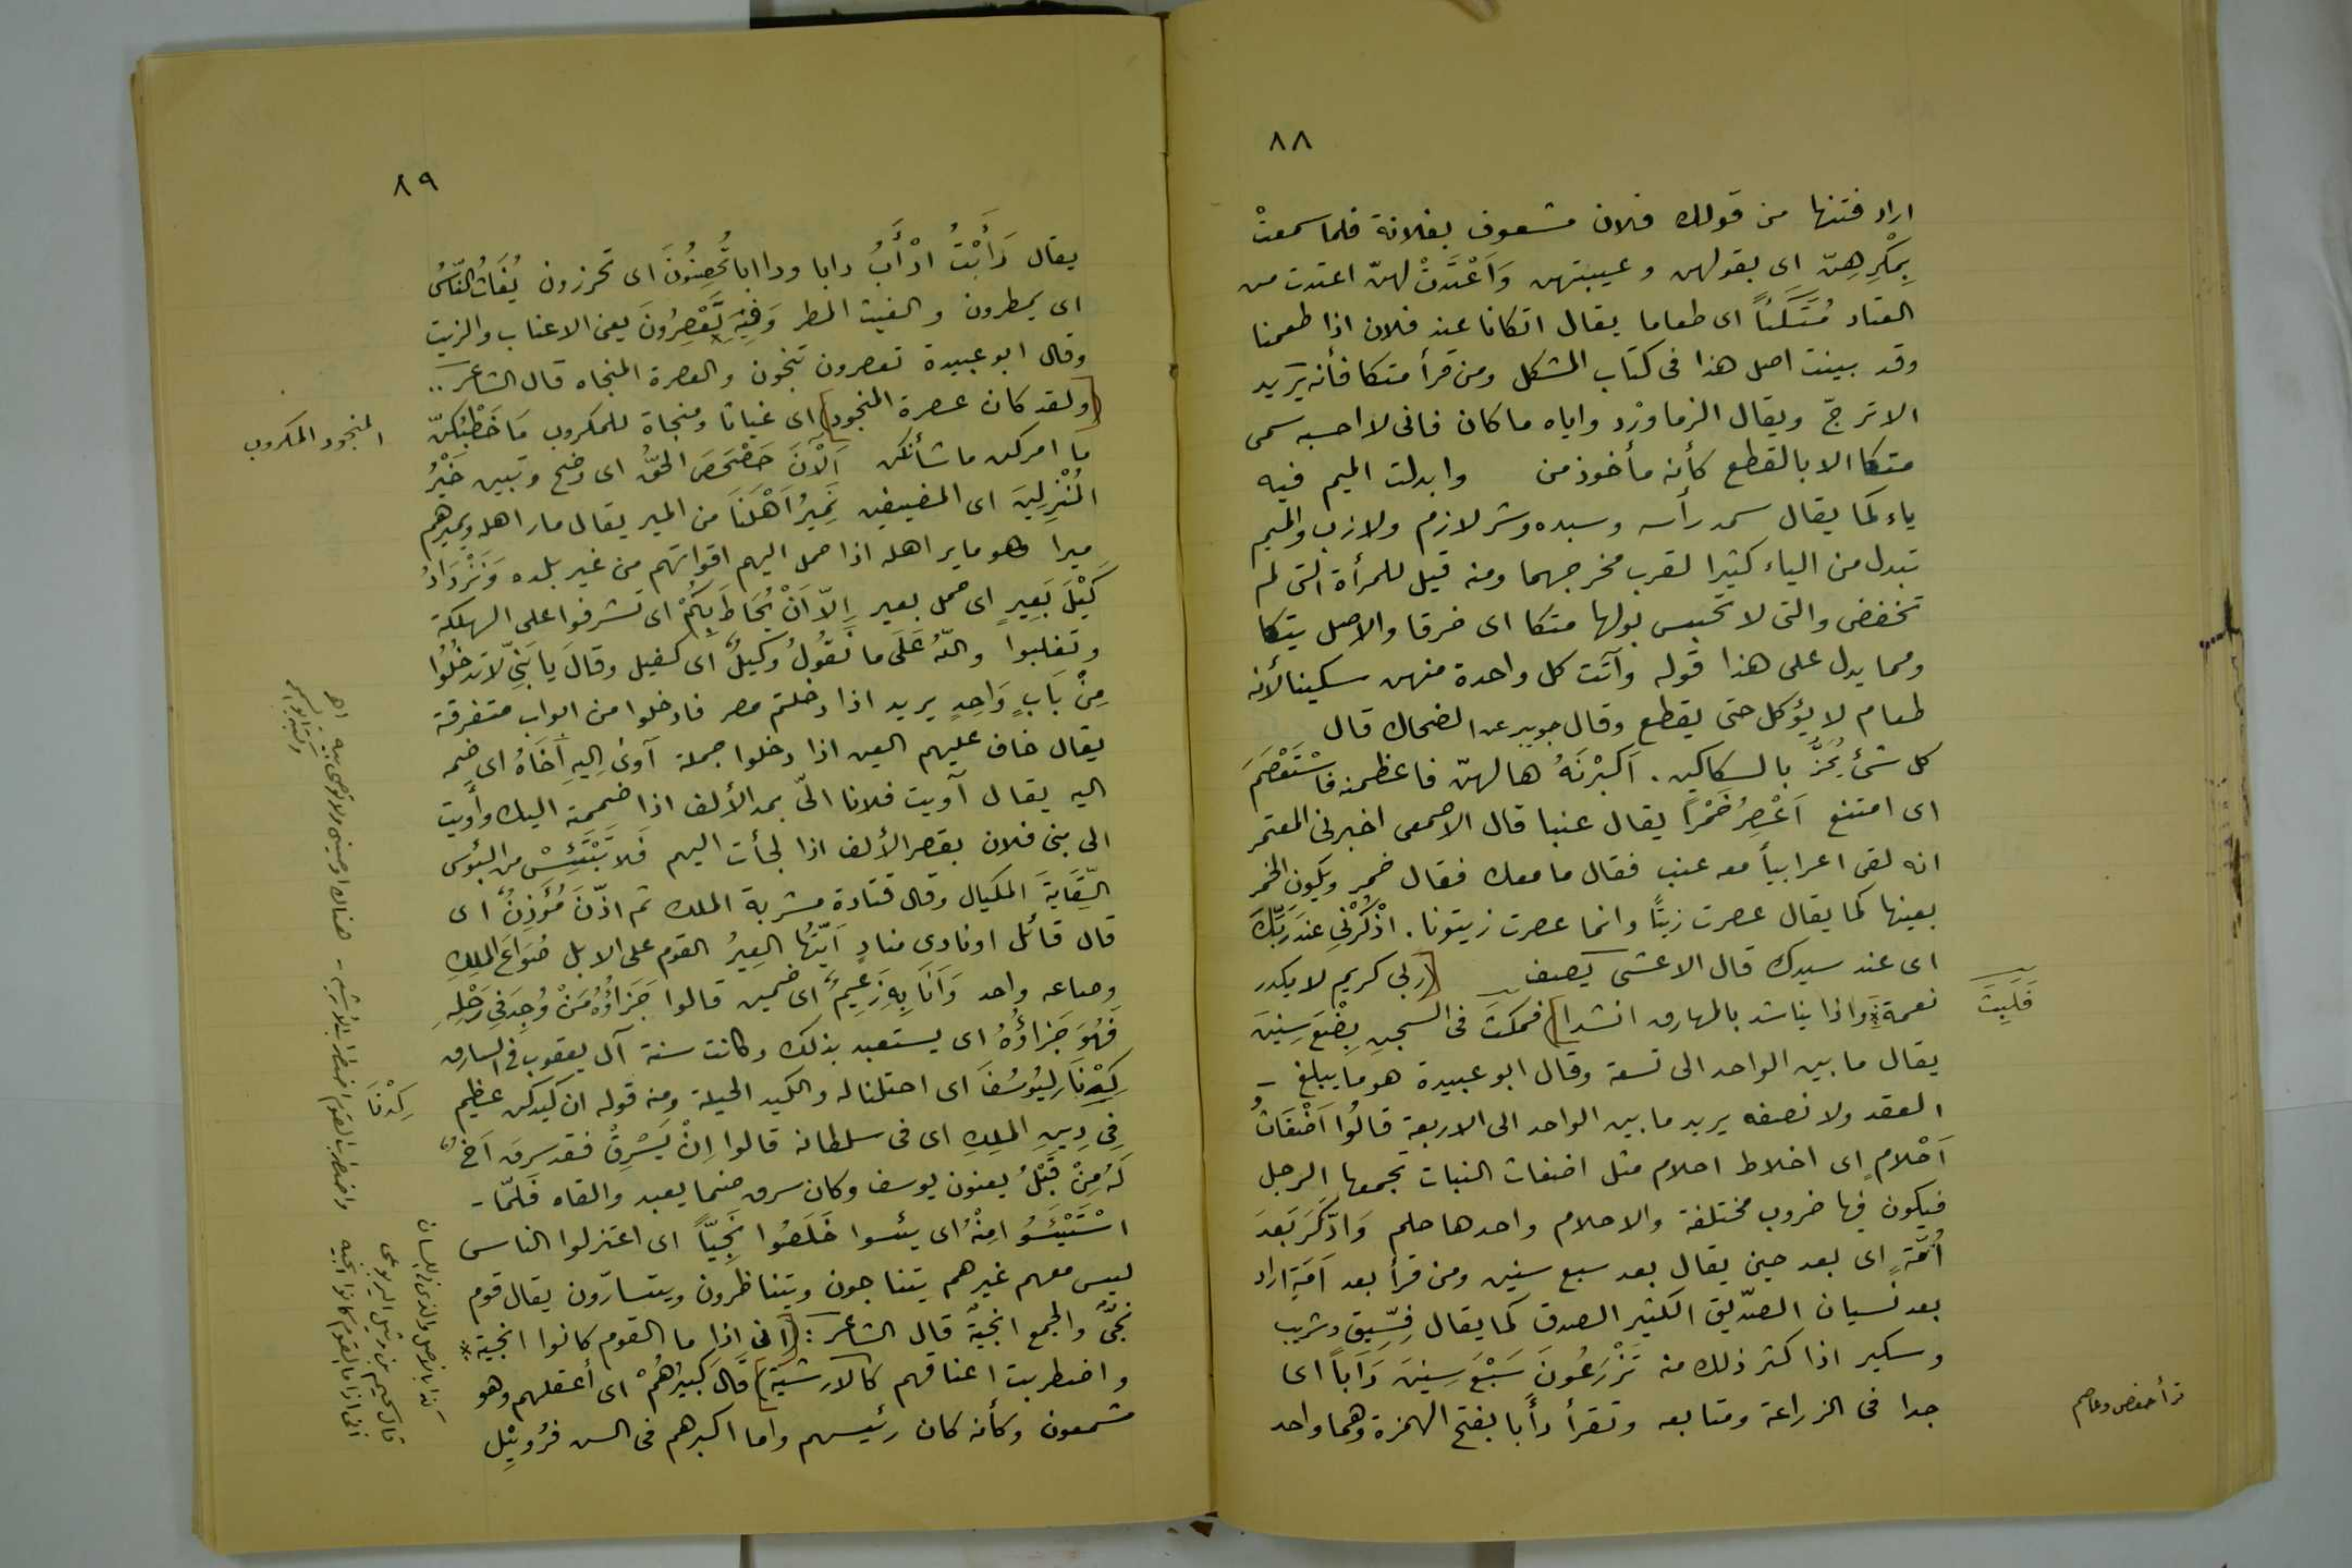 ٨٨
اراد فتنها من قولك فلان مشعوف بفلانة فلما سمعتْ
بِمَكْرِهِنّ اى بقولهن وعيبتهن وَاَعْتَدَتْ لهنّ اعتدت من
العتاد مُتَّكَئاً اى طعاما يقال اتكانا عند فلان اذا طعمنا
وقد بينت اصل هذا فى كتاب المشكل ومن قرأ متكا فأنه يريد
الاترجّ ويقال الزماورْد واياه ما كان فانى لا احسبه سمى
متكا الا بالقطع كأنه مأخوذ من وابدلت الميم فيه
ياء كما يقال سمد رأسه وسبده وشر لازم ولازب والميم
تبدل من الياء كثيرا لقرب مخرجهما ومنه قيل للمرأة التى لم
تخفض والتى لا تحبس بولها متكا اى خرقا والاصل بتكا
ومما يدل على هذا قوله وآتت كل واحدة منهن سكينا لأنه
طعام لا يؤكل حتى يقطع وقال جويبر عن الضحاك قال
كل شئ يُحَزُّ بالسكاكين . اَكبْرنَهُ هالهنّ فاعظمنه فاسْتَعْصَمَ
اى امتنع اَعْصِرُ خَمْراً يقال عنبا قال الاصمعى اخبرنى المعتمر
انه لقى اعرابياً معه عنب فقال ما معك فقال خمر ويكون الخمر
بعينها كما يقال عصرت زيتاً وانما عصرت زيتونا . اذْكُرْنِي عندَ رَبِّكَ
اى عند سيدك قال الاعشى يصف (ربى كريم لا يكدر
نعمة * واذا يناشد بالمهارق انشدا) فمكثَ فى السجنِ بِضْعَ سِنِينَ
فَلَبِثَ
يقال ما بين الواحد الى تسعة وقال ابو عبيدة هو ما يبلغ -
العقد ولا نصفه يريد ما بين الواحد الى الاربعة قالُوا اَضْغَاثُ
اَحْلامٍ اى اخلاط احلام مثل اضغاث النبات تجمعها الرجل
فيكون فيها ضروب مختلفة والاحلام واحدها حلم وَادَّكَرَ بَعدَ
اُمَّةٍ اى بعد حين يقال بعد سبع سنين ومن قرأ بعد اَمَةٍ اراد
بعد نسيان الصدّيق الكثير الصدق كما يقال فِسِّيق وشريب
وسكير اذا كثر ذلك منه تَزْرَعُونَ سَبْعَ سِنِينَ دَاَباً اى
جدا فى الزراعة ومتابعه وتقرأ دأَبا بفتح الهمزة وهما واحد
قرأ حفص وعاصم
٨٩
يقال دَأَبْتُ ادْأَبُ دابا ودا ابا تُحْصِنُونَ اى تحرزون يُغَاثُ النّاسُ
اى يمطرون والغيث المطر وَفِيْهِ تَعْصِرُونَ يعنى الاعناب والزيت
وقال ابو عبيدة تعصرون تنجون والعصرة المنجاه قال الشاعر ..
(ولقد كان عصرة المنجود) اى غياثا ومنجاة للمكروب مَا خَطْبُكنّ
المنجود المكروب
ما امركن ما شأنكن اَلآنَ حَصْحَصَ الحَقُّ اى وضح وتبين خَيْرُ
المُنْزِلِينَ اى المضيفين نَمِيرُ اَهْلَنَا من المير يقال مار اهله ويميرهم
ميرا وهو ماير اهله اذا حمل اليهم اقواتهم من غير بلده وَنَزْدَادُ
كَيْلَ بَعِيرٍ اى حمل بعير اِلاّ اَنْ يُحَاطَ بِكُمْ اى تشرفوا على الهلكة
وتغلبوا واللّهُ عَلَى ما نَقُولُ وَكِيلٌ اى كفيل وقالَ يا بَنِيّ لا تدخُلُوا
مِنْ بَابٍ وَاحِدٍ يريد اذا دخلتم مصر فادخلوا من ابواب متفرقة
يقال خاف عليهم العين اذا دخلوا جملة آوىٰ اِليهِ اَخَاهُ اى ضمه
اليه يقال آويت فلانا الىّ بمد الألف اذا ضممته اليك وأويت
الى بنى فلان بقصر الألف اذا لجأت اليهم فَلا تَبْتَئِسْ من البؤس
السِّقَايَةَ المكيال وقال قتادة مشربة الملك ثم اذّنَ مُؤَذِنٌ اى
قال قائل او نادى منادٍ اَيّتُها العِيرُ القوم على الابل صُوَاعَ الملِكِ
وصاعه واحد وَاَنَا بِهِ زَعِيمٌ اى ضمين قالوا جَزَاؤُهُ مَنْ وُجِدَ فِي رَحْلِهِ
فَهُوَ جَزاؤُهُ اى يستعبد بذلك وكانت سنة آل يعقوب فى السارق
كِدْنَا لِيُوسُفَ اى احتلنا له والكيد الحيلة ومنه قوله ان كَيدكن عظيم
كِدْنَا
فِي دِينِ المَلِكِ اى فى سلطانه قالوا اِنْ يَسْرِقْ فقد سرقَ اَخٌ
لَهُ مِنْ قَبْلُ يعنون يوسف وكان سرق صنما يعبد والقاه فَلمّا -
اسْتَيْئَسُوا مِنْهُ اى يئسوا خَلَصُوا نَجِيّاً اى اعتزلوا الناس
ليس معهم غيرهم يتناجون ويتناظرون ويتسارّون يقال قوم
نجىٌ والجمع انجيةٌ قال الشاعر : (انى اذا ما القوم كانوا انجية *
واضطربت اعناقهم كالارشية) قالَ كَبيرُهُمْ اى أعقلهم وهو
شمعون وكأنه كان رئيسهم واما اكبرهم فى السن فرُوئيِل
كذا بالاصل والذى فى اللسان
قال سحيم بن وثيل اليربوعى
انى اذا ما القوم كانوا انجيه
واضطرب القوم اضطراب الأرشيه - هناك اوصينى ولا توصى بيه اهـ